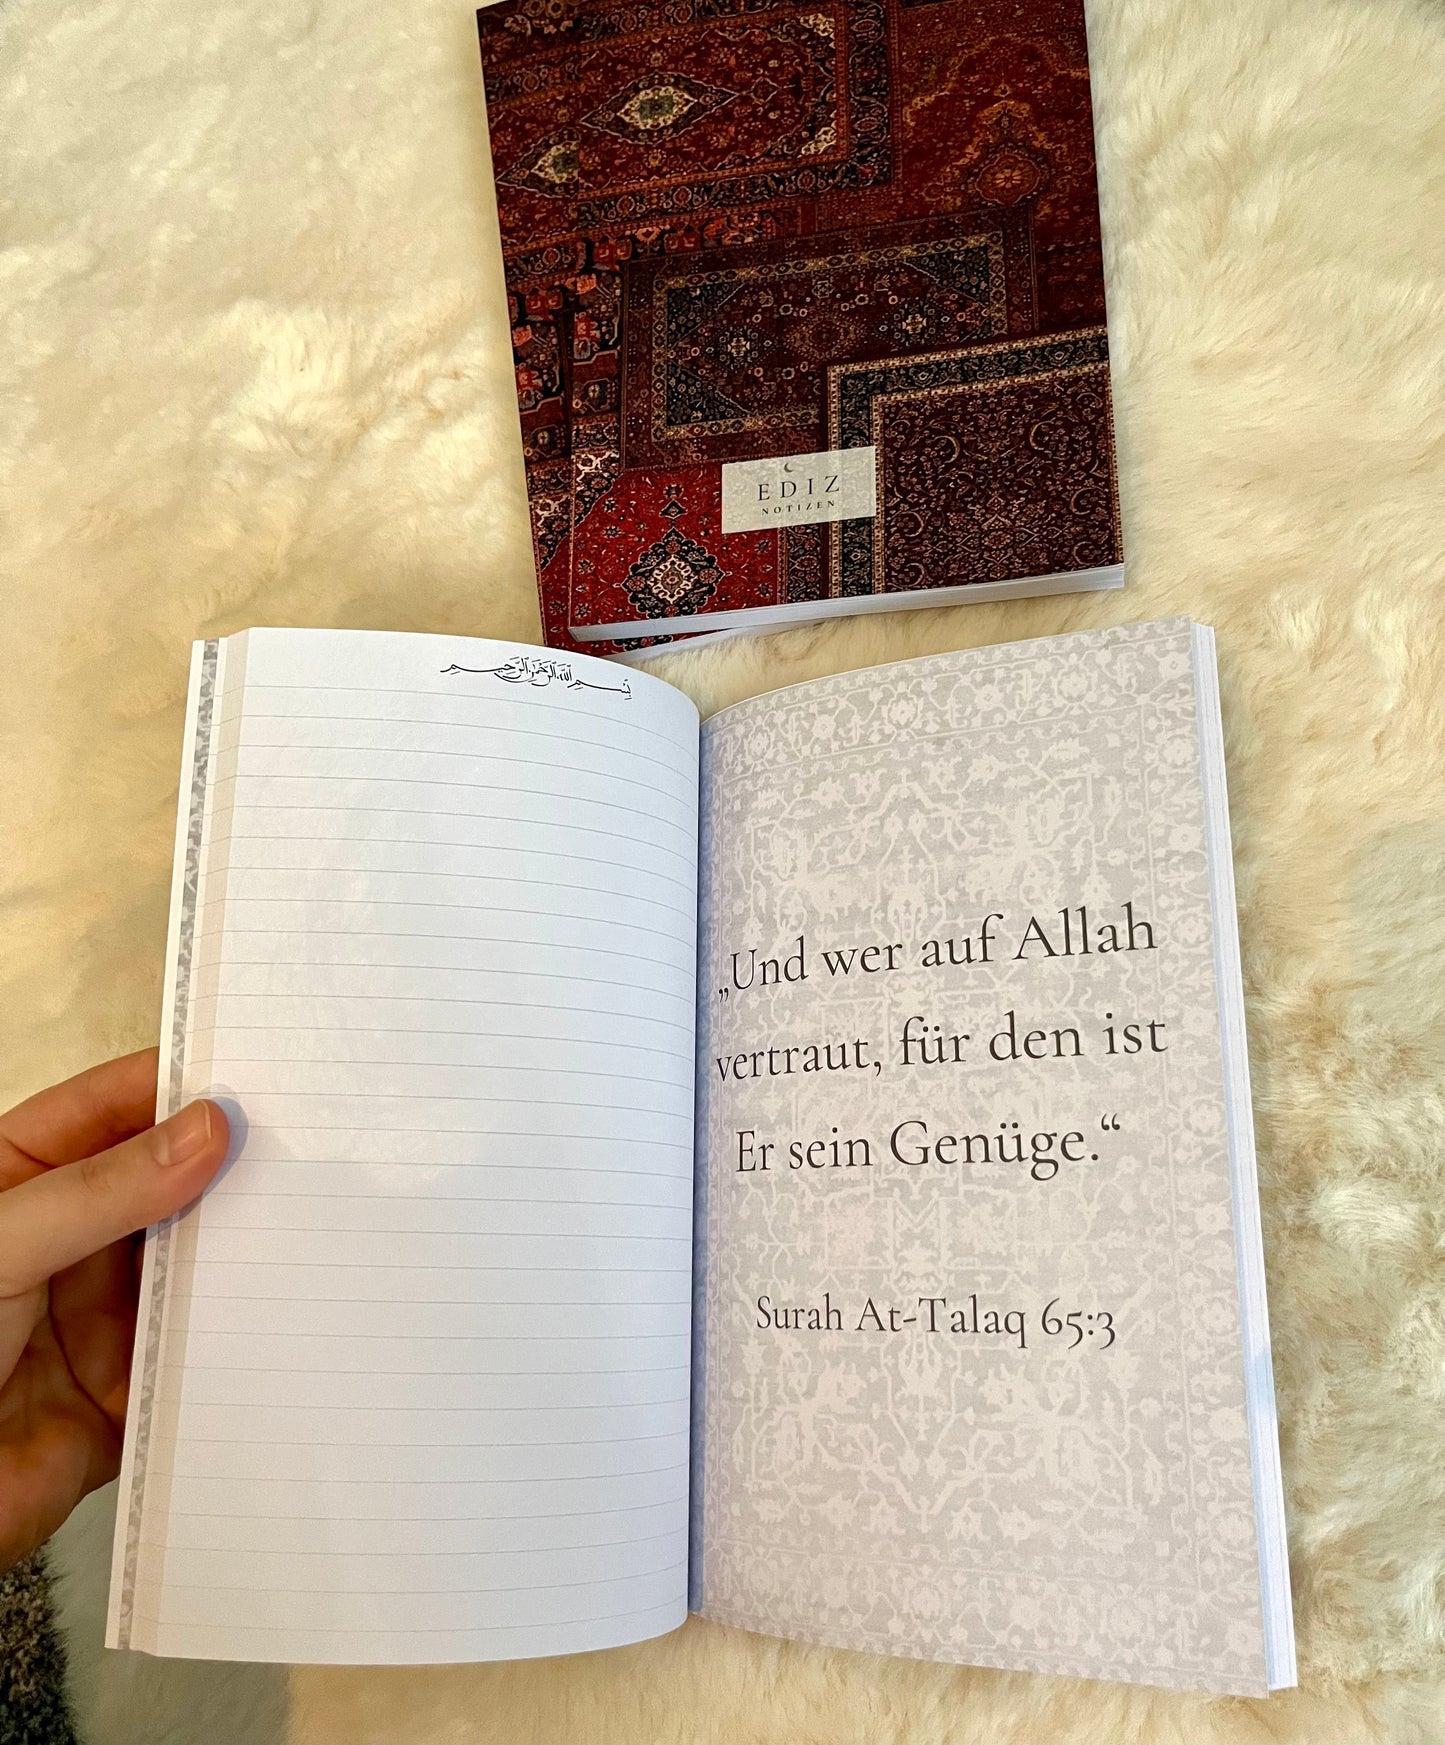 EDIZ
NOTIZEN
بِسْمِ اللهِ الرَّحْمٰنِ الرَّحِيمِ
„Und wer auf Allah
vertraut, für den ist
Er sein Genüge.“
Surah At-Talaq 65:3